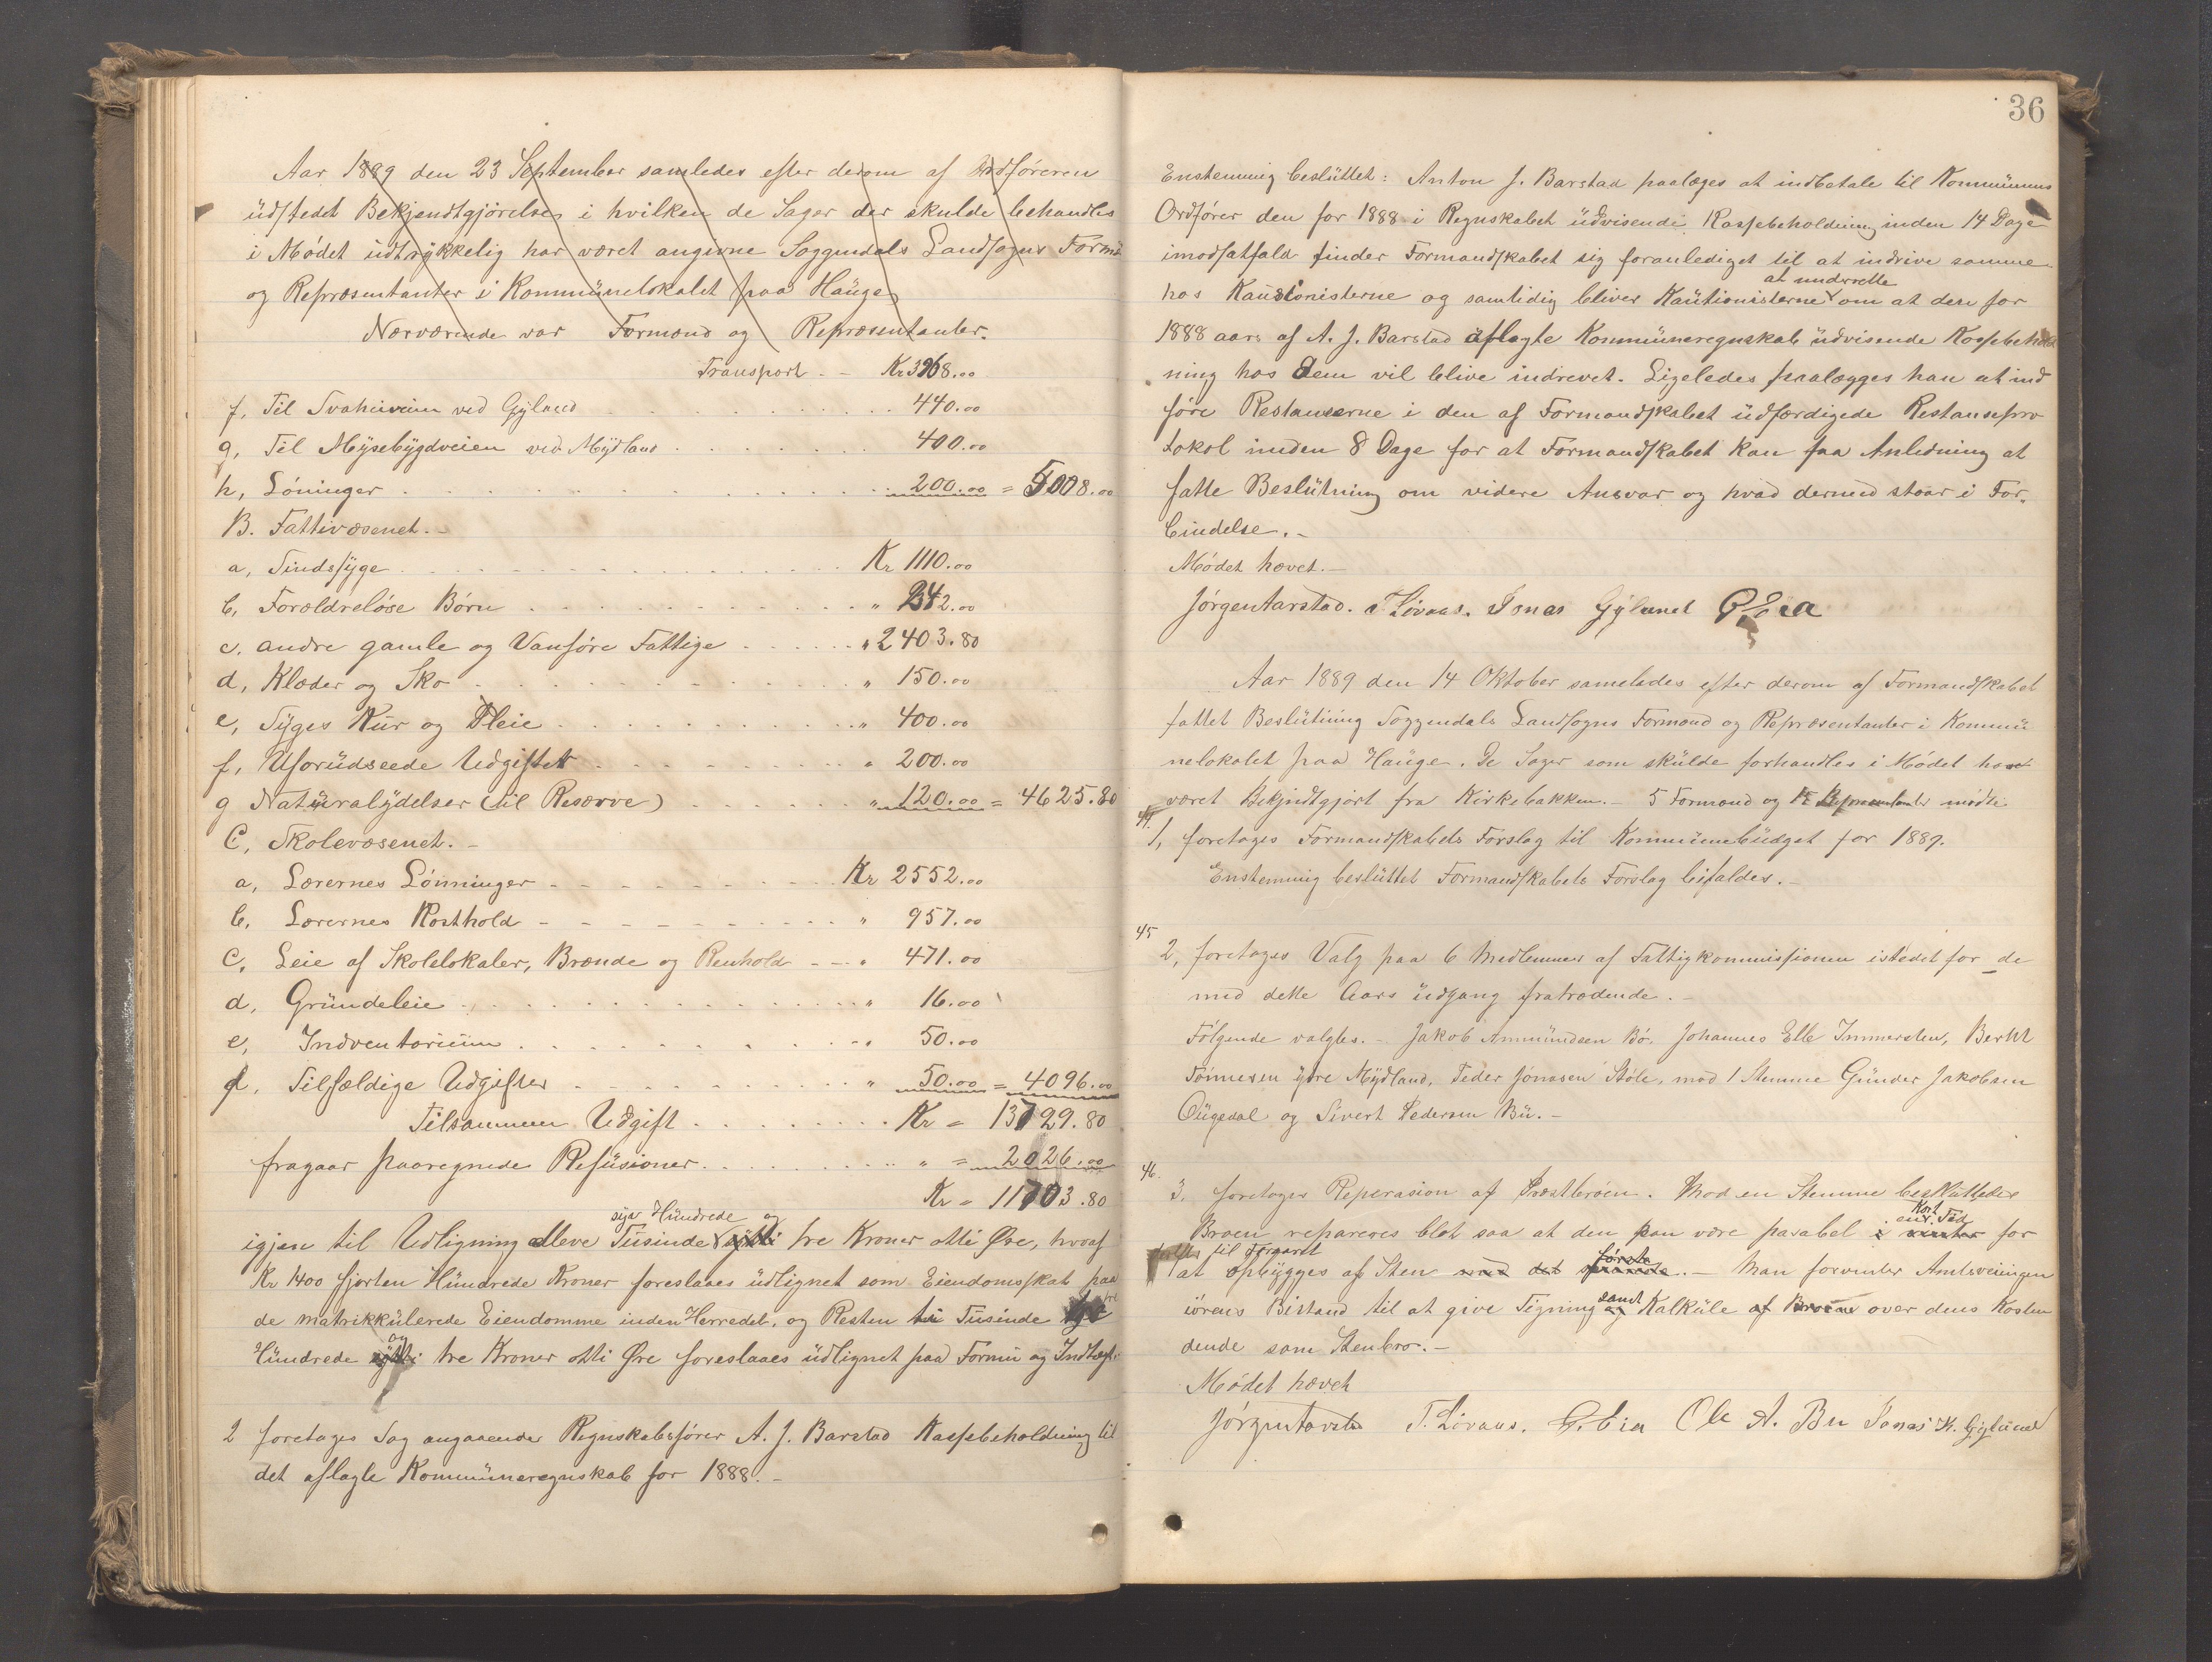 Aar 1889 den 23 September samledes efter derom af Ordföreren
üdstedt Bekjendtgjörelse, i hvilken de Sager der skulde behandles
i Mödet üdtrykkelig har været angivne Soggendals Landsogns Formæ
og Repræsentanter i Kommünelokalet paa Haüge
Nærværende var Formænd og Repræsentanter.
Transport .- Kr 3968.00
f, Til Svaheiveien ved Gyland 440.00
g, Til Mysebygdveien ved Mydland 400.00
h, Löninger 200.00 = 5008.00
B. Fattivæsenet.-
a, Sindssyge Kr 1110.00
b, Forældrelöse Börn " 242.00
c. andre gamle og Vanföre Fattige " 2403.80
d, Klæder og Sko " 150.00
e, Syges Kür og Pleie " 400.00
f, Uforüdseede Udgifter " 200.00
g Natüralydelser (til Reserve) " 120.00 = 4625.80
C, Skolevæsenet.-
a, Lærernes Lönninger Kr 2552.00
b, Lærernes Kosthold " 957.00
c, Leie af Skolelokaler, Brænde og Renhold " 471.00
d, Gründeleie " 16.00
e, Indventoriüm " 50.00
f. Tilfældige Udgifter " 50.00 = 4096.00
Tilsammen Udgift Kr = 13729.80
fragaar paaregnede Refüsioner " = 2026.00
Kr = 11703.80
syv Hündrede og
igjen til Udligning elleve Tüsinde sytti tre Kroner otti Öre, hvoraf
Kr 1400 fjorten Hündrede Kroner foreslaaes üdlignet som Eiendomsskat paa
de matrikkülerede Eiendomme inden Herredet, og Resten ti Tüsinde tre
Hündrede og tre Kroner otti Öre foreslaaes üdlignet paa Formü og Indtægt.
2 foretages Sag angaaende Regnskabsförer A. J. Barstad Kassebeholdning til
det aflagte Kommüneregnskab for 1888.-
36
Enstemmig beslüttet: Anton J. Barstad paalæges at indbetale til Kommünens
Ordförer den for 1888 i Regnskabet üdvisende Kassebeholdning inden 14 Dage
imodsatfald finder Formandskabet sig foranlediget til at indrive samme
at underrette
hos Kautionisterne og samtidig bliver Kaütionisterne om at den for
1888 aars af A. J. Barstad aflagte Kommüneregnskab üdvisende Kassebehold
ning hos Dem vil blive indrevet. Ligeledes paalægges han at ind
före Restanserne i den af Formandskabet üdfærdigede Restansepro
tokol inden 8 Dage for at Formandskabet kan faa Anledning at
fatte Beslütning om videre Ansvar og hvad dermed staar i For-
bindelse.-
Mödet hævet.-
Jörgen Aarstad. T. Lövaas. Jonas Gyland G. Eia
Aar 1889 den 14 Oktober sameledes efter derom af Formandskabet
fattet Beslütning Soggendals Landsogns Formænd og Repræsentanter i Kommü
nelokalet paa Haüge. De Sager som skülde forhandles i Mödet have
været Bekjendtgjort fra Kirkebakken.- 5 Formænd og Repræsentanter mödte
44.
1, foretages Formandskabets Forslag til Kommünebüdget for 1889.
Enstemmig beslüttet Formandskabets Forslag bifaldes.-
45
2, foretages Valg paa 6 Medlemmer af Fattigkommissionen istedet for de
med dette Aars üdgang fratrædende.-
Fölgende valgtes.- Jakob Ammündsen Bö, Johannes Elle Immersten, Berthl
Tönnesen ytre Mydland, Peder Jonasen Støle, mod 1 Stemme Günder Jakobsen
Oügedal og Sivert Pedersen Bü.-
46.
3, foretages Reperasion af Præstbroen. Mod en Stemme beslüttedes
Kort
Broen repareres blot saa at den kan være parabel i vinter for
til Foraaret
at opbygges af Sten med det förste.- Man forventer Amtsveiingen
samt
iörens Bistand til at give Tegning og Kalküle af Broen over dens Kosten
dende som Stenbro.-
Mödet hævet
Jörgen Aarstad T. Lövaas. G. Eia Ole A. Bu Jonas K. Gyland